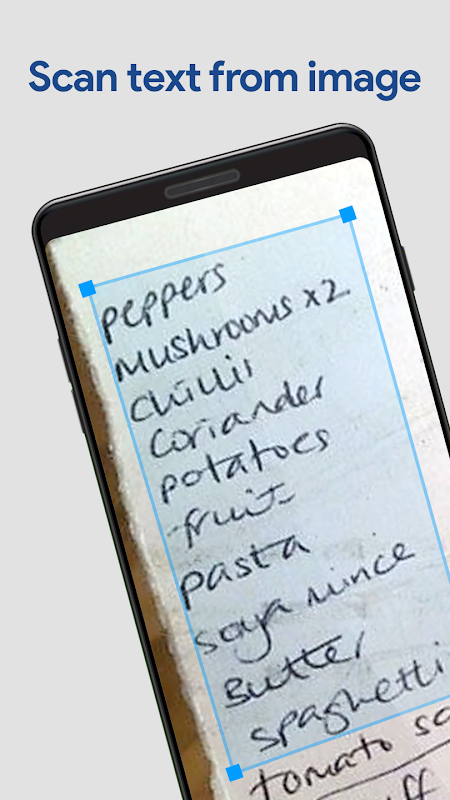 Scan text from image
peppers
Mushrooms x2
Chilli
Coriander
potatoes
fruit
pasta
soya mince
Butter
spaghetti
tomato